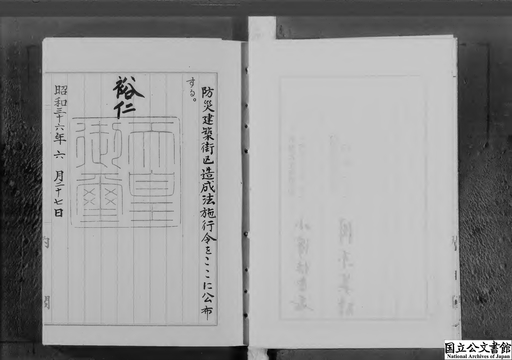 防災建築街区造成法施行令をここに公布
する。
裕仁
天皇御璽
昭和三十六年六月二十七日
内閣
国立公文書館
National Archives of Japan